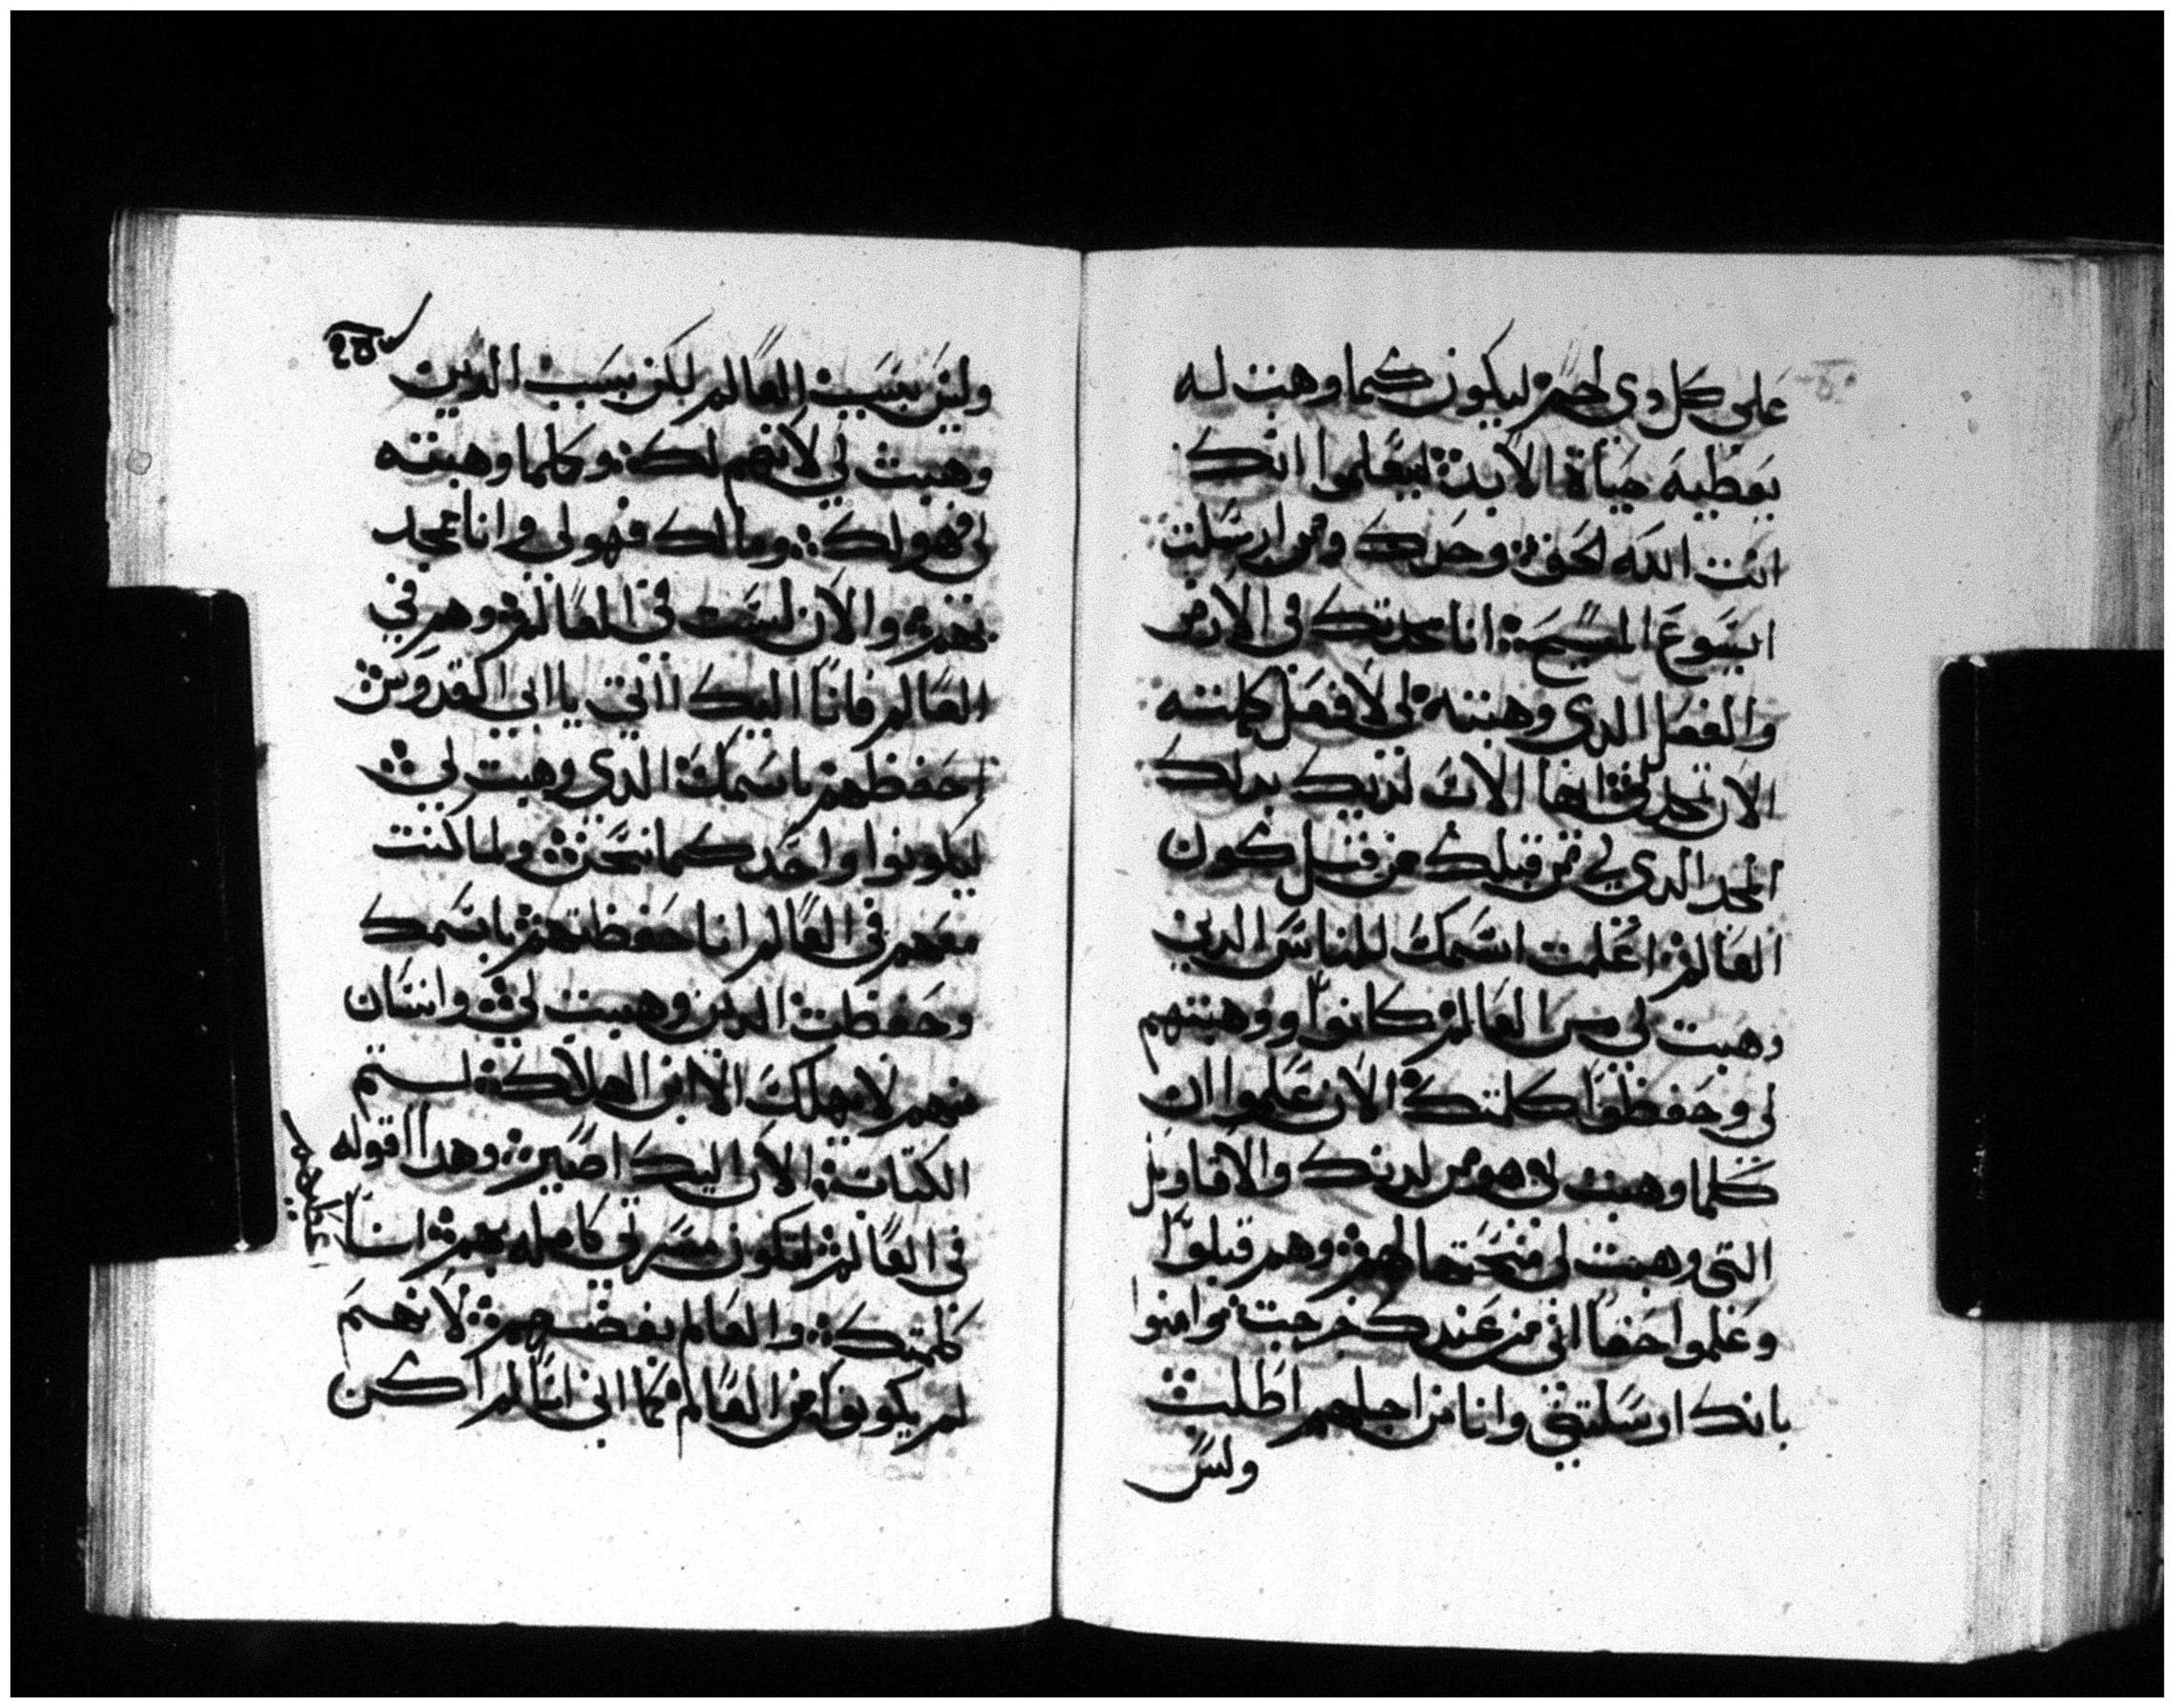 على كل دى لحم ܀ ليكون كما وهبت له
يعطيه حياة الابد ܀ ليعلموا انك
انت الله الحق ܀ وحدك ومن ارسلت
ايسوع المسيح ܀ انا مجدتك فى الارض
والفعل الدى وهبته لى لافعل كملته
الان مجدنى ايها الاب لديك بدلك
المجد الدى لى من قبلك من قبل كون
العالم ܀ اعلمت اسمك للناس الدين
وهبت لى من العالم كانوا ووهبتهم
لى وحفظوا كلمتك ܀ الان علموا ان
كلما وهبت لى هو من لدنك والاقاويل
التى وهبت لى منحتها لهم ܀ وهم قبلوا
وعلموا حقا انى من عندك خرجت وامنوا
بانك ارسلتنى وانا من اجلهم اطلب ܀
وليس
وليس بسبب العالم لكن بسبب الدين
وهبت لي لانهم لك ܀ وكلما وهبته
لى فهو لك ܀ ومالك فهو لى وانا ممجد
بهم ܀ والان لست فى العالم ܀ وهم في
العالم فانا اليك ااتي يا ابي القدوس ܀
احفظهم باسمك الدي وهبت لي ܀
ليكونوا واحد كما نحن ܀ ولما كنت
معهم فى العالم انا حفظتهم ܀ باسمك
وحفظت الدين وهبت لي ܀ وانسان
منهم لا يهلك الا ابن الهلاك ܀ ليتم
الكتاب ܀ الان اليك اصير ܀ وهدا اقوله
فى العالم ܀ لتكون مسرتى كامله بهم ܀ انا
كلمتك ܀ والعالم بغضهم ܀ لانهم
لم يكونوا من العالم كما انى انا لم اكن